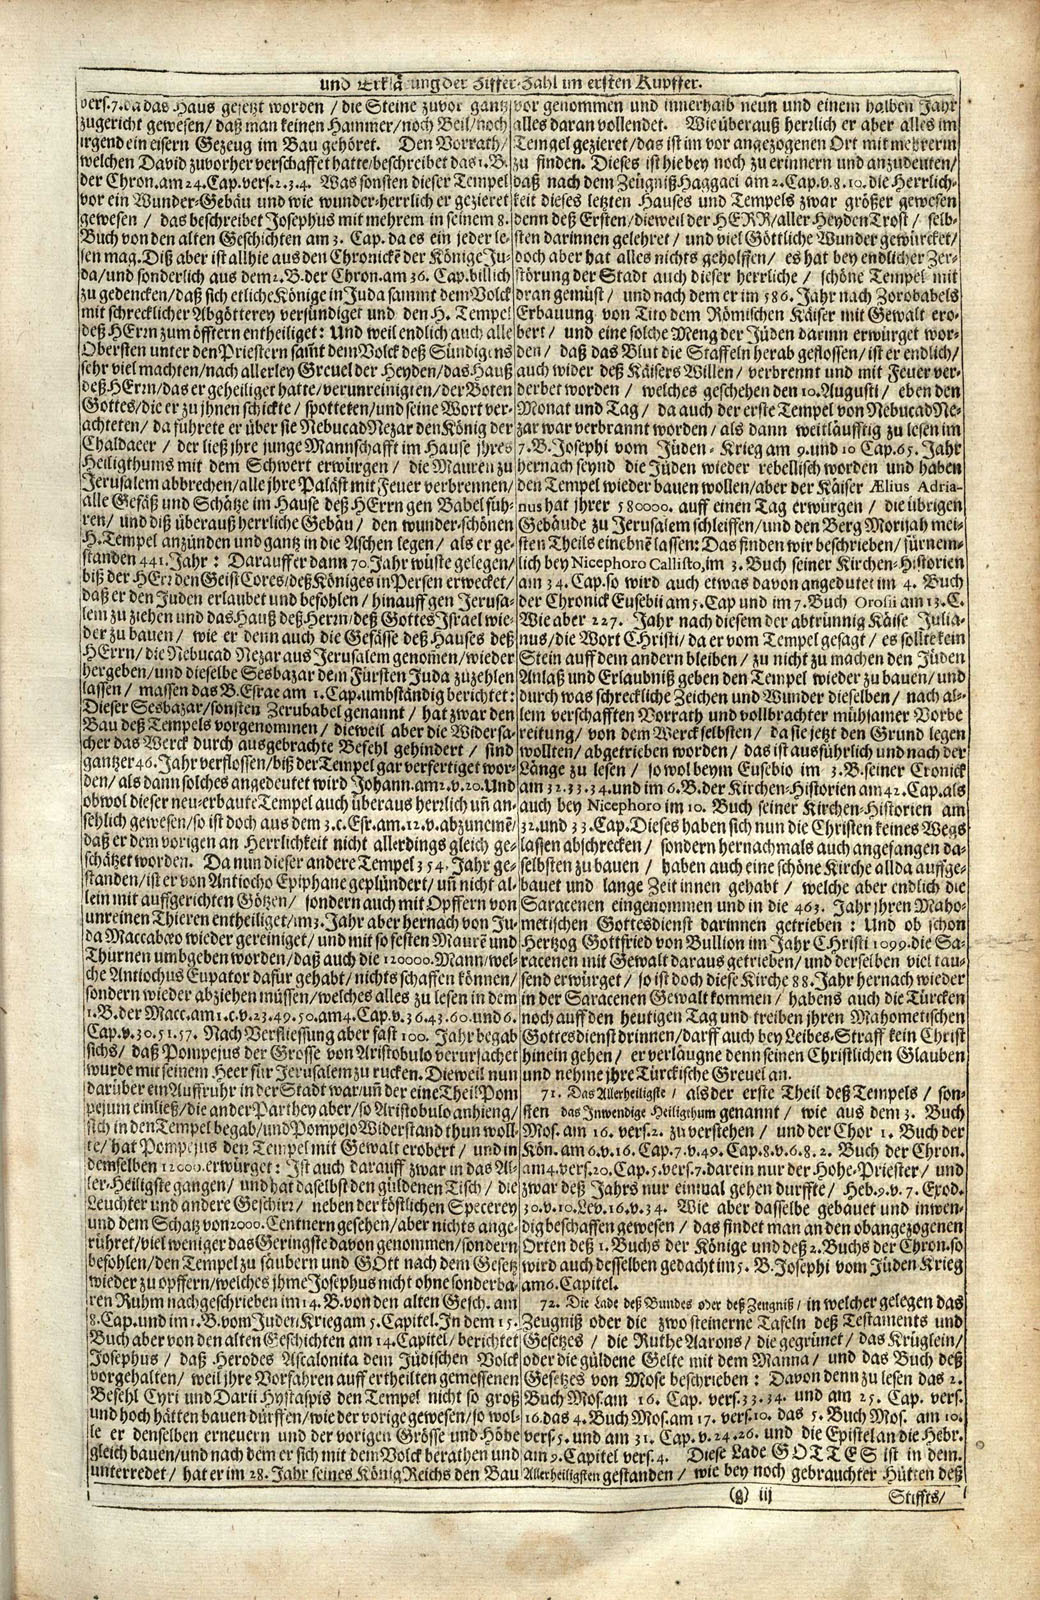 und Erklärung der Ziffer-Zahl im ersten Kupffer.
vers. 7. da das Haus gesetzt worden / die Steine zuvor gantz
zugericht gewesen / daß man keinen Hammer / noch Beil / noch
irgend ein eisern Gezeug im Bau gehöret. Den Vorrath /
welchen David zuvorher verschaffet hatte / beschreibet das 1. B.
der Chron. am 24. Cap. vers. 2. 3. 4. Was sonsten dieser Tempel
vor ein Wunder-Gebäu und wie wunder-herrlich er gezieret
gewesen / das beschreibet Josephus mit mehrem in seinem 8.
Buch von den alten Geschichten am 3. Cap. da es ein jeder le-
sen mag. Diß aber ist allhie aus den Chronickē der Könige Ju-
da / und sonderlich aus dem 2. B. der Chron. am 36. Cap. billich
zu gedencken / daß sich etliche Könige in Juda sammt dem Volck
mit schrecklicher Abgötterey versündiget und den H. Tempel
deß HErrn zum öfftern entheiliget: Und weil endlich auch alle
Obersten unter den Priestern sam̃t dem Volck deß Sündigens
sehr viel machten / nach allerley Greuel der Heyden / das Hauß
deß HErrn / das er geheiliget hatte / verunreinigten / der Boten
Gottes / die er zu jhnen schickte / spotteten / und seine Wort ver-
achteten / da führete er über sie NebucadNezar den König der
Chaldaeer / der ließ jhre junge Mannschafft im Hause jhres
Heiligthums mit dem Schwert erwürgen / die Mauren zu
Jerusalem abbrechen / alle jhre Paläst mit Feuer verbrennen /
alle Gefäß und Schätze im Hause deß HErrn gen Babel füh-
ren / und diß überauß herrliche Gebäu / den wunder-schönen
H. Tempel anzünden und gantz in die Aschen legen / als er ge-
standen 441. Jahr: Darauff er dann 70. Jahr wüste gelegen /
biß der HErr den Geist Cores / deß Königes in Persen erwecket /
daß er den Juden erlaubet und befohlen / hinauff gen Jerusa-
lem zu ziehen und das Hauß deß Herrn / deß Gottes Israel wie-
der zu bauen / wie er denn auch die Gefässe deß Hauses deß
HErrn / die Nebucad Nezar aus Jerusalem genom̃en / wieder
hergeben / und dieselbe Sesbazar dem Fürsten Juda zuzehlen
lassen / massen das B. Esrae am 1. Cap. umbständig berichtet:
Dieser Sesbazar / sonsten Zerubabel genannt / hat zwar den
Bau deß Tempels vorgenommen / dieweil aber die Widersa-
cher das Werck durch ausgebrachte Befehl gehindert / sind
gantzer 46. Jahr verflossen / biß der Tempel gar verfertiget wor-
den / als dann solches angedeutet wird Johann. am 2. v. 20. Und
obwol dieser neu-erbaute Tempel auch überaus herrlich uñ an-
sehlich gewesen / so ist doch aus dem 3. c. Esr. am. 12. v. abzunemē /
daß er dem vorigen an Herrlichkeit nicht allerdings gleich ge-
schätzet worden. Da nun dieser andere Tempel 354. Jahr ge-
standen / ist er von Antiocho Epiphane geplündert / uñ nicht al-
lein mit auffgerichten Götzen / sondern auch mit Opffern von
unreinen Thieren entheiliget / im 3. Jahr aber hernach von Ju-
da Maccabæo wieder gereiniget / und mit so festen Maurē und
Thürnen umbgeben worden / daß auch die 120000. Mann / wel-
che Antiochus Eupator dafür gehabt / nichts schaffen können /
sondern wieder abziehen müssen / welches alles zu lesen in dem
1. B. der Macc. am 1. c. v. 23. 49. 50. am 4. Cap. v. 36. 43. 60. und 6.
Cap. v. 30. 51. 57. Nach Verfliessung aber fast 100. Jahr begab
sichs / daß Pompejus der Grosse von Aristobulo verursachet
wurde mit seinem Heer für Jerusalem zu rucken. Dieweil nun
darüber ein Auffruhr in der Stadt war / uñ der eine Theil Pom
pejum einließ / die ander Parthey aber / so Aristobulo anhieng /
sich in den Tempel begab / und Pompejo Widerstand thun woll-
te / hat Pompejus den Tempel mit Gewalt erobert / und in
demselben 12000. erwürget: Ist auch darauff zwar in das Al-
ler-Heiligste gangen / und hat daselbst den güldenen Tisch / die
Leuchter und andere Geschirr / neben der köstlichen Specerey
und dem Schatz von 2000. Centnern gesehen / aber nichts ange-
rühret / viel weniger das Geringste davon genommen / sondern
befohlen / den Tempel zu säubern und GOtt nach dem Gesetz
wieder zu opffern / welches jhme Josephus nicht ohne sonderba-
ren Ruhm nachgeschrieben im 14. B. von den alten Gesch. am
8. Cap. und im 1. B. vom Juden Krieg am 5. Capitel. In dem 15.
Buch aber von den alten Geschichten am 14. Capitel / berichtet
Josephus / daß Herodes Ascalonita dem Jüdischen Volck
vorgehalten / weil jhre Vorfahren auff ertheilten gemessenen
Befehl Cyri und Darii Hystaspis den Tempel nicht so groß
und hoch hätten bauen dürffen / wie der vorige gewesen / so wol-
le er denselben erneuern und der vorigen Grösse und Höhe
gleich bauen / und nach dem er sich mit dem Volck berathen und
unterredet / hat er im 28. Jahr seines König Reichs den Bau
vor genommen und innerhalb neun und einem halben Jahr
alles daran vollendet. Wie überauß herrlich er aber alles im
Tempel gezieret / das ist im vor angezogenen Ort mit mehrerm
zu finden. Dieses ist hiebey noch zu erinnern und anzudeuten /
daß nach dem Zeugniß Haggaei am 2. Cap. v. 8. 10. die Herrlich-
keit dieses letzten Hauses und Tempels zwar größer gewesen
denn deß Ersten / dieweil der HERR / aller Heyden Trost / selb-
sten darinnen gelehret / und viel Göttliche Wunder gewürcket /
doch aber hat alles nichts geholffen / es hat bey endlicher Zer-
störung der Stadt auch dieser herrliche / schöne Tempel mit
dran gemüst / und nach dem er im 586. Jahr nach Zorobabels
Erbauung von Tito dem Römischen Käiser mit Gewalt ero-
bert / und eine solche Meng der Jüden darinn erwürget wor-
den / daß das Blut die Staffeln herab geflossen / ist er endlich /
auch wider deß Käisers Willen / verbrennt und mit Feuer ver-
derbet worden / welches geschehen den 10. Augusti / eben den
Monat und Tag / da auch der erste Tempel von NebucadNe-
zar war verbrannt worden / als dann weitläufftig zu lesen im
7. B. Josephi vom Jüden-Krieg am 9. und 10 Cap. 65. Jahr
hernach seynd die Jüden wieder rebellisch worden und haben
den Tempel wieder bauen wollen / aber der Käiser Ælius Adria-
nus hat jhrer 580000. auff einen Tag erwürgen / die übrigen
Gebäude zu Jerusalem schleiffen / und den Berg Morijah mei-
sten Theils einebnē lassen: Das finden wir beschrieben / fürnem-
lich bey Nicephoro Callisto, im 3. Buch seiner Kirchen-Historien
am 34. Cap. so wird auch etwas davon angedutet im 4. Buch
der Chronick Eusebii am 5. Cap und im 7. Buch Orosii am 13. C.
Wie aber 227. Jahr nach diesem der abtrünnig Käise Julia-
nus / die Wort CHristi / da er vom Tempel gesagt / es sollte kein
Stein auff dem andern bleiben / zu nicht zu machen den Jüden
Anlaß und Erlaubniß geben den Tempel wieder zu bauen / und
durch was schreckliche Zeichen und Wunder dieselben / nach al-
lem verschafften Vorrath und vollbrachter mühsamer Vorbe
reitung / von dem Werck selbsten / da sie jetzt den Grund legen
wollten / abgetrieben worden / das ist ausführlich und nach der
Länge zu lesen / so wol beym Eusebio im 3. B. seiner Cronick
am 32. 33. 34. und im 6. B. der Kirchen-Historien am 42. Cap. als
auch bey Nicephoro im 10. Buch seiner Kirchen-Historien am
32. und 33. Cap. Dieses haben sich nun die Christen keines Wegs
lassen abschrecken / sondern hernachmals auch angefangen da-
selbsten zu bauen / haben auch eine schöne Kirche allda auffge-
bauet und lange Zeit innen gehabt / welche aber endlich die
Saracenen eingenommen und in die 463. Jahr jhren Maho-
metischen Gottesdienst darinnen getrieben: Und ob schon
Hertzog Gottfried von Bullion im Jahr CHristi 1099. die Sa-
racenen mit Gewalt daraus getrieben / und derselben viel tau-
send erwürget / so ist doch diese Kirche 88. Jahr hernach wieder
in der Saracenen Gewalt kommen / habens auch die Türcken
noch auff den heutigen Tag und treiben jhren Mahometischen
Gottesdienst drinnen / darff auch bey Leibes-Straff kein Christ
hinein gehen / er verläugne denn seinen Christlichen Glauben
und nehme jhre Türckische Greuel an.
71. Das Allerheiligste / als der erste Theil deß Tempels / son-
sten das Inwendige Heiligthum genannt / wie aus dem 3. Buch
Mos. am 16. vers. 2. zu verstehen / und der Chor 1. Buch der
Kön. am 6. v. 16. Cap. 7. v. 49. Cap. 8. v. 6. 8. 2. Buch der Chron.
am 4. vers. 20. Cap. 5. vers. 7. darein nur der Hohe-Priester / und
zwar deß Jahrs nur einmal gehen durffte / Heb. 9. v. 7. Exod.
30. v. 10. Lev. 16. v. 34. Wie aber dasselbe gebauet und inwen-
dig beschaffen gewesen / das findet man an den obangezogenen
Orten deß 1. Buchs der Könige und deß 2. Buchs der Chron. so
wird auch desselben gedacht im 5. B. Josephi vom Jüden Krieg
am 6. Capitel.
72. Die Lade deß Bundes oder deß Zeugniß / in welcher gelegen das
Zeugniß oder die zwo steinerne Tafeln deß Testaments und
Gesetzes / die Ruthe Aarons / die gegrünet / das Krüglein /
oder die güldene Gelte mit dem Manna / und das Buch deß
Gesetzes von Mose beschrieben: Davon denn zu lesen das 2.
Buch Mos. am 16. Cap. vers. 33. 34. und am 25. Cap. vers.
16. das 4. Buch Mos. am 17. vers. 10. das 5. Buch Mos. am 10.
vers. 5. und am 31. Cap. v. 24. 26. und die Epistel an die Hebr.
am 9. Capitel vers. 4. Diese Lade GOTTES ist in dem
Allerheiligsten gestanden / wie bey noch gebrauchter Hütten deß
(g) iij
Stiffts /